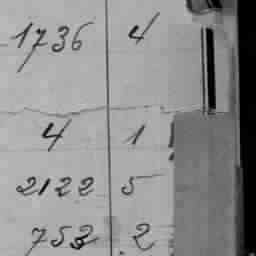 1736 4
4 1
2122 5
753 2